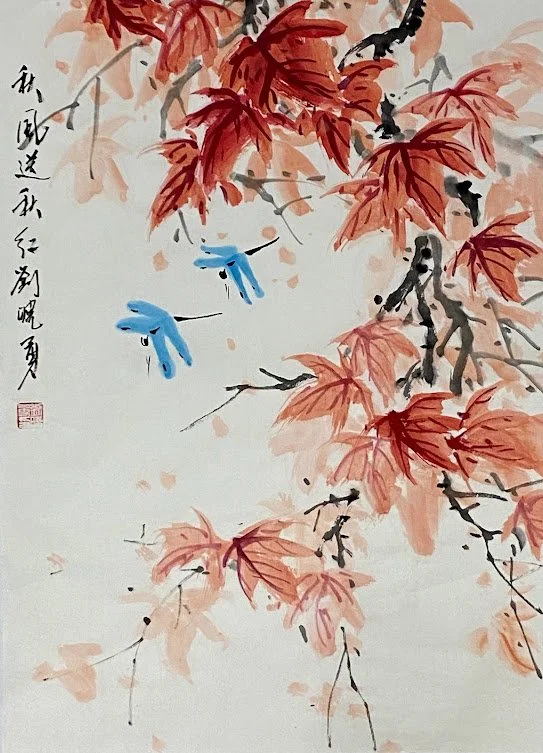 秋風送秋紅劉曉勇